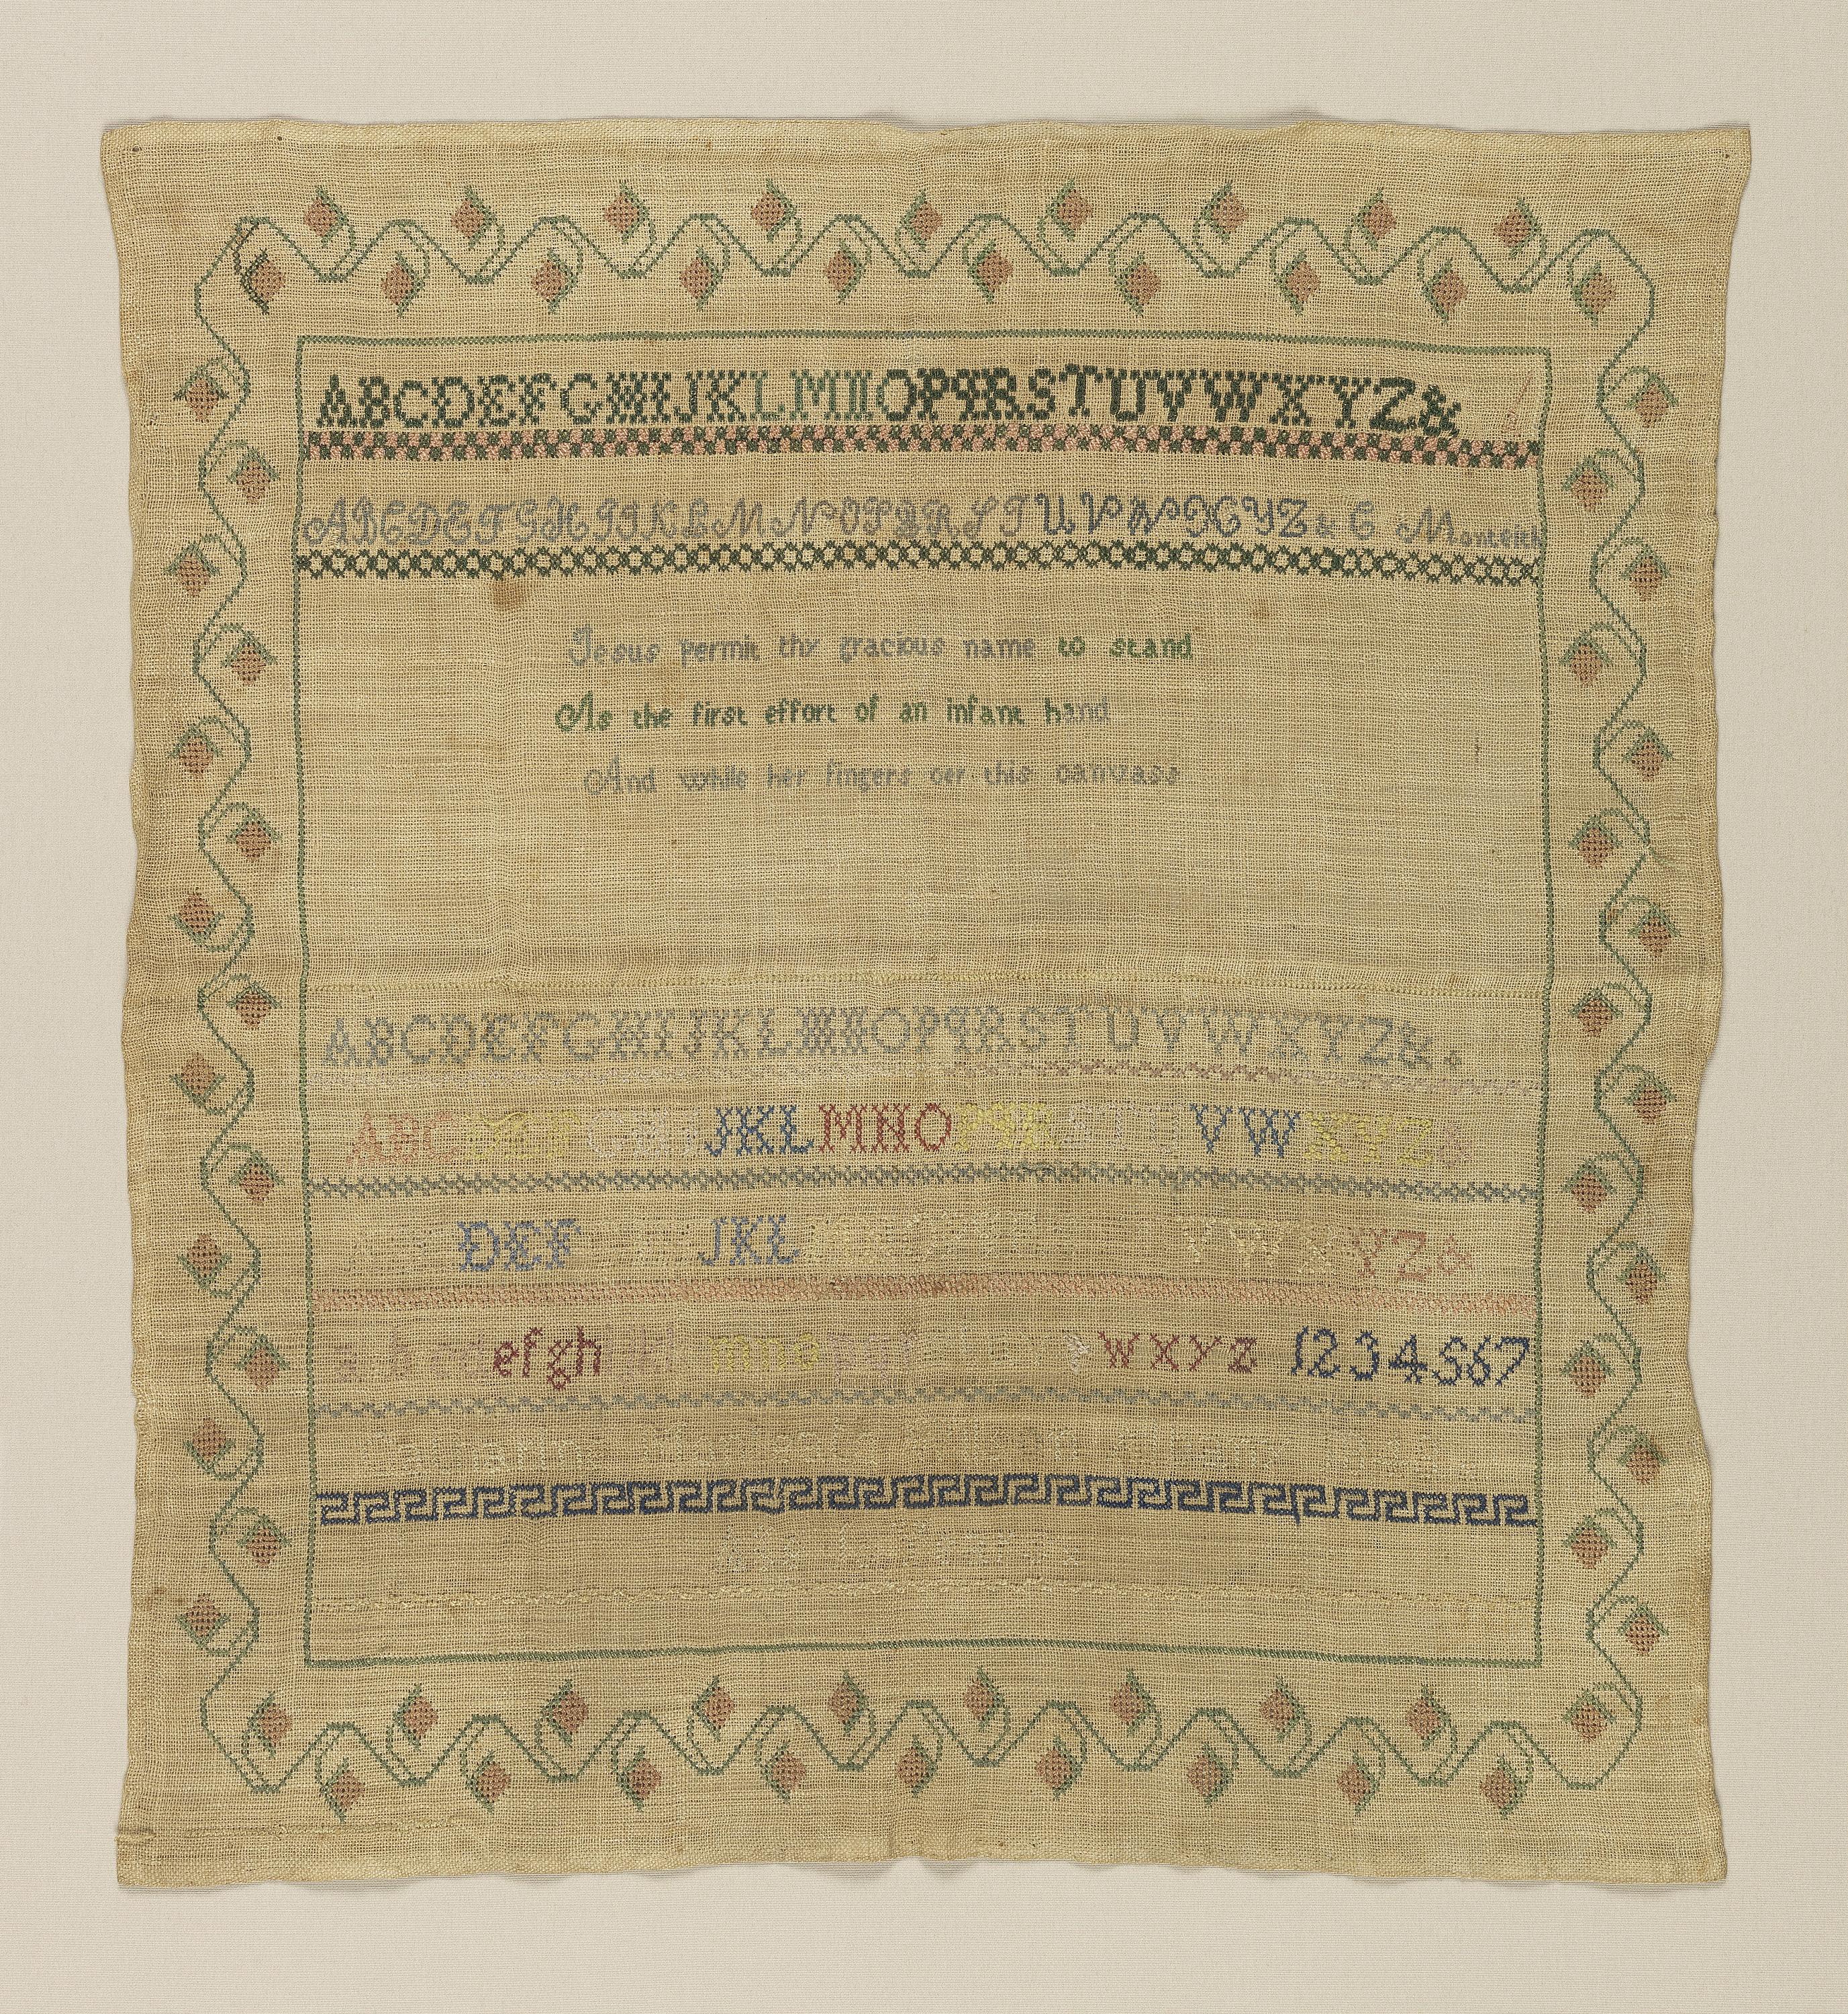 ABCDEFGHIJKLMNOPQRSTUVWXYZ&
ABCDEFGHIJKLMNOPQRSTUVWXYZ & C Monteith
Jesus permit thy gracious name to stand
As the first effort of an infant hand
And while her fingers oer this canvass
ABCDEFGHIJKLMNOPQRSTUVWXYZ&.
ABCDEFGHIJKLMNOPQRSTUVWXYZ&
DEF JKL VWXYZ&
a b c d e f g h m n o p q r w x y z 1234567